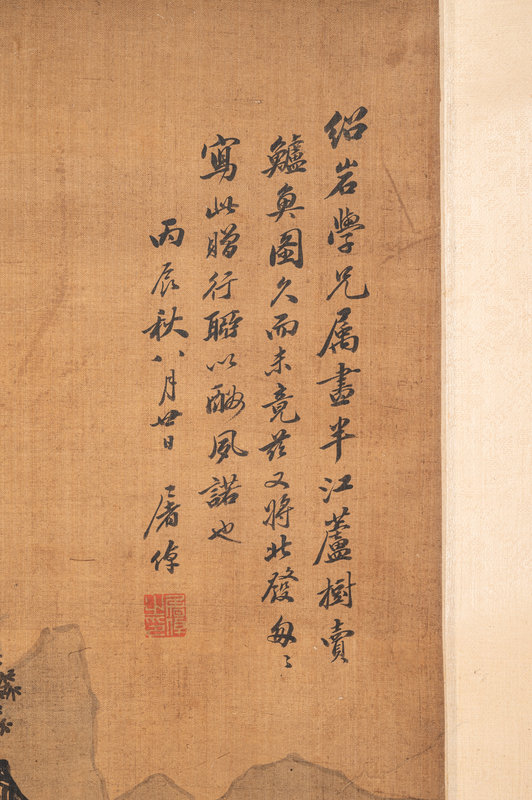 绍岩學兄属畫半江蘆樹賣
鱸魚圖久而未竟茲又將北發匆〻
寫此贈行聊以酬夙諾也
丙辰秋八月廿日 屠倬